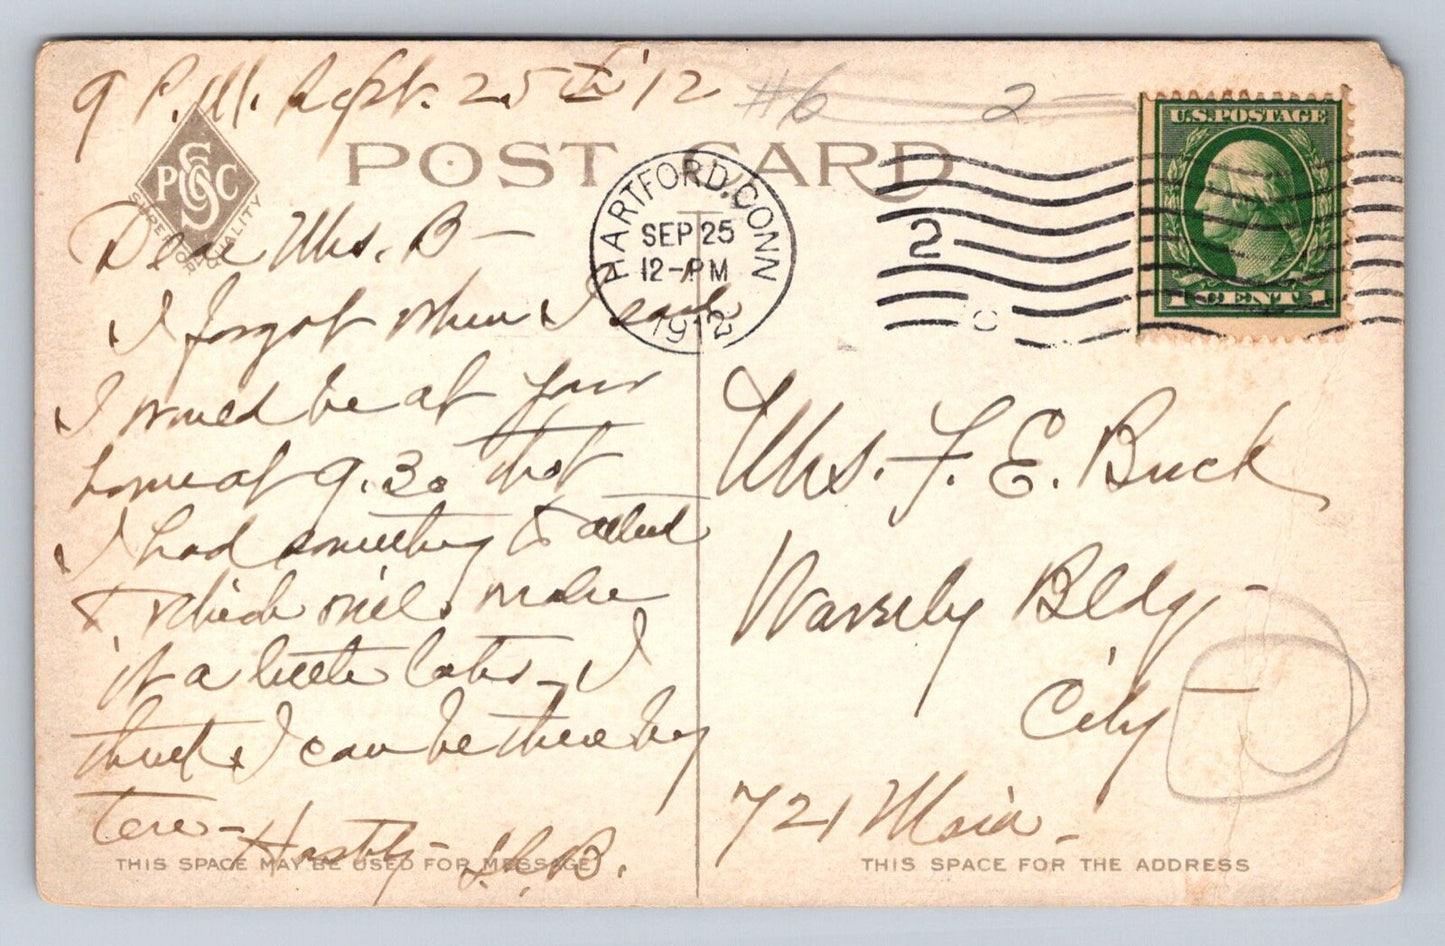 9 P.M. Sept. 25th '12
#6 2
POST CARD
P S G C
SUPERIOR QUALITY
HARTFORD, CONN
SEP 25
12-PM
1912
2
C
U.S. POSTAGE
1 CENT 1
Dear Mrs. B —
I forgot when I said
I would be at your
home at 9.30 that
I had something to attend
to which will make
it a little later — I
think I can be there by
ten —
Hastily — S. B.
Mrs. F. E. Buck
Waverly Bldg —
City —
721 Main —
THIS SPACE MAY BE USED FOR MESSAGE
THIS SPACE FOR THE ADDRESS